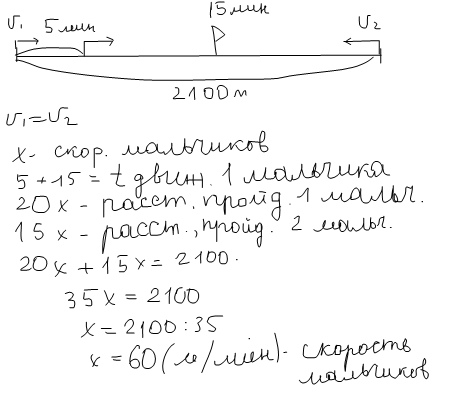 V₁ 5 мин 15 мин V₂
2100 м
V₁ = V₂
x - скор. мальчиков
5 + 15 = t движ. 1 мальчика
20x - расст. пройд. 1 мальч.
15x - расст., пройд. 2 мальч.
20x + 15x = 2100.
35x = 2100
x = 2100 : 35
x = 60 (м/мин) - скорость
мальчиков